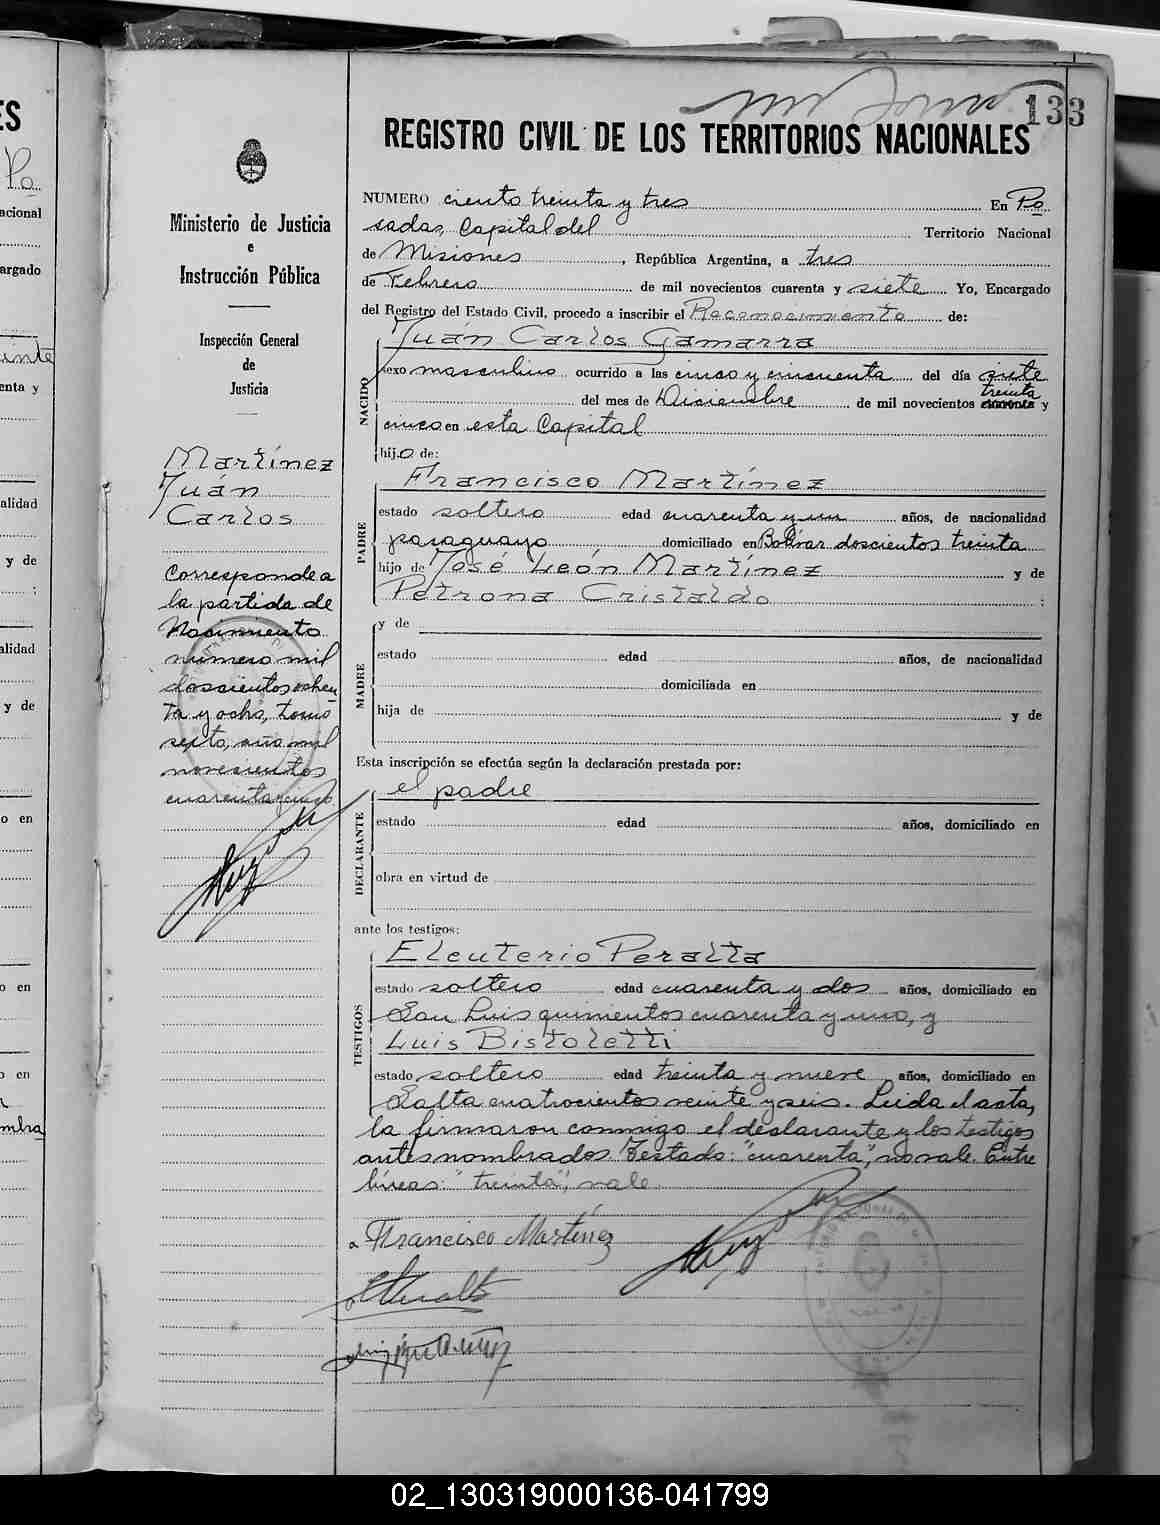 133
REGISTRO CIVIL DE LOS TERRITORIOS NACIONALES
NUMERO ciento treinta y tres En Po
sadas, Capital del Territorio Nacional
de Misiones, República Argentina, a tres
de Febrero de mil novecientos cuarenta y siete Yo, Encargado
del Registro del Estado Civil, procedo a inscribir el Reconocimiento de:
NACIDO
Juán Carlos Gamarra
sexo masculino ocurrido a las cinco y cincuenta del día siete
del mes de Diciembre de mil novecientos cuarenta treinta y
cinco en esta Capital
hijo de:
PADRE
Francisco Martínez
estado soltero edad cuarenta y un años, de nacionalidad
paraguayo domiciliado en Bolívar doscientos treinta
hijo de José León Martínez y de
Petrona Cristaldo :
MADRE
y de
estado edad años, de nacionalidad
domiciliada en
hija de y de
Esta inscripción se efectúa según la declaración prestada por:
DECLARANTE
el padre
estado edad años, domiciliado en
obra en virtud de
ante los testigos:
TESTIGOS
Eleuterio Peralta
estado soltero edad cuarenta y dos años, domiciliado en
San Luis quinientos cuarenta y uno, y
Luis Bistoletti
estado soltero edad treinta y nueve años, domiciliado en
Salta cuatrocientos veinte y seis. Leida el acta,
la firmaron conmigo el declarante y los testigos
antes nombrados. Testado: "cuarenta", no vale. Entre
líneas: "treinta", vale.
Francisco Martínez
EPeralta
Ministerio de Justicia
e
Instrucción Pública
Inspección General
de
Justicia
Martínez
Juán
Carlos
Corresponde a
la partida de
Nacimiento
número mil
doscientos ochen
ta y ocho, tomo
septo, año mil
novecientos
cuarenta y cinco
ES
Po
acional
argado
einte
enta y
alidad
y de
:
alidad
y de
o en
o en
o en
mbra
02_130319000136-041799